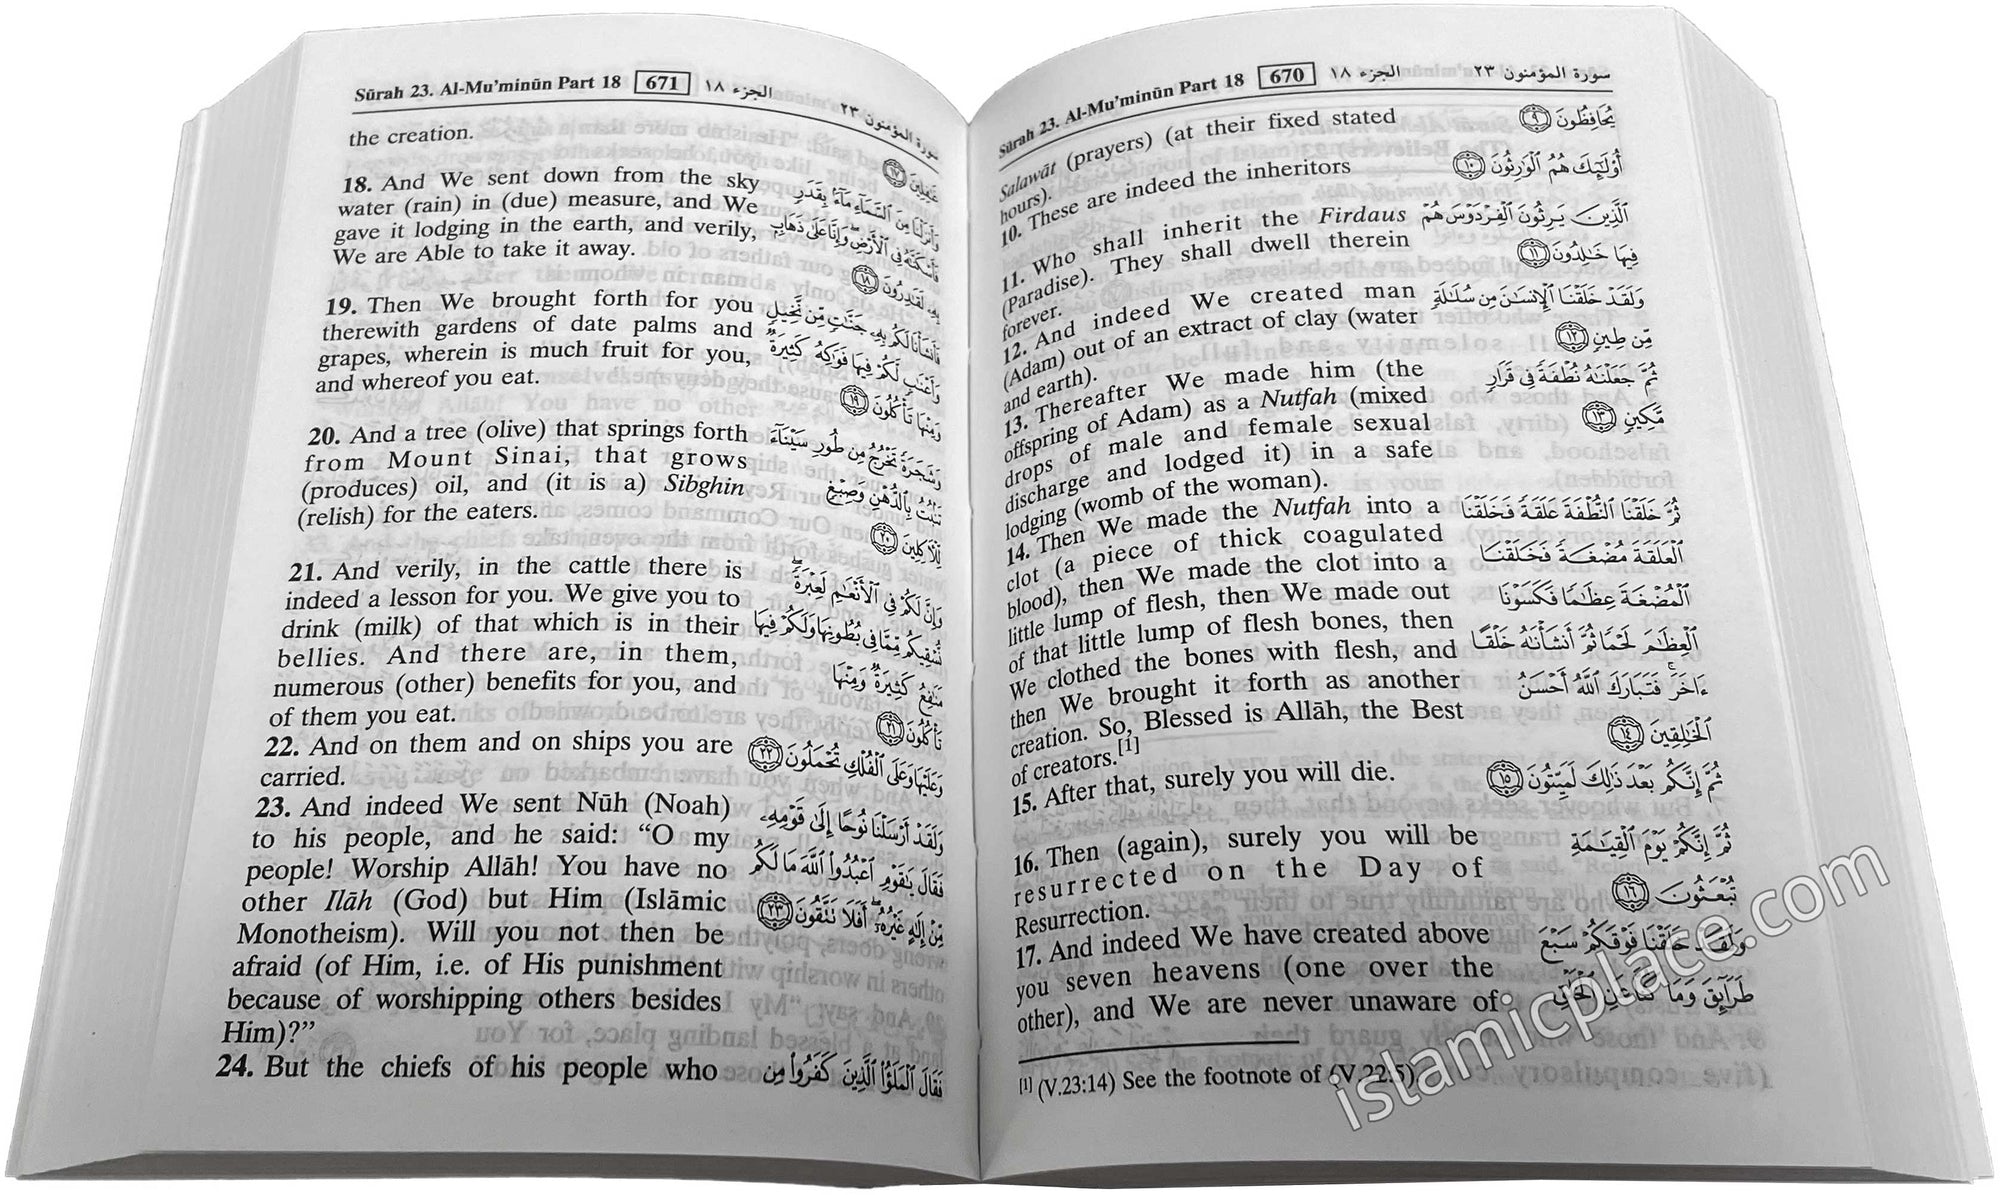 Sūrah 23. Al-Mu'minūn Part 18 670 الجزء ١٨ سورة المؤمنون ٢٣
Salawāt (prayers) (at their fixed stated
hours).
10. These are indeed the inheritors
11. Who shall inherit the Firdaus
(Paradise). They shall dwell therein
forever.
12. And indeed We created man
(Adam) out of an extract of clay (water
and earth).
13. Thereafter We made him (the
offspring of Adam) as a Nutfah (mixed
drops of male and female sexual
discharge and lodged it) in a safe
lodging (womb of the woman).
14. Then We made the Nutfah into a
clot (a piece of thick coagulated
blood), then We made the clot into a
little lump of flesh, then We made out
of that little lump of flesh bones, then
We clothed the bones with flesh, and
then We brought it forth as another
creation. So, Blessed is Allāh, the Best
of creators.[1]
15. After that, surely you will die.
16. Then (again), surely you will be
resurrected on the Day of
Resurrection.
17. And indeed We have created above
you seven heavens (one over the
other), and We are never unaware of
يُحَافِظُونَ ٩
أُوْلَٰٓئِكَ هُمُ ٱلْوَٰرِثُونَ ١٠
ٱلَّذِينَ يَرِثُونَ ٱلْفِرْدَوْسَ هُمْ
فِيهَا خَٰلِدُونَ ١١
وَلَقَدْ خَلَقْنَا ٱلْإِنسَٰنَ مِن سُلَٰلَةٍ
مِّن طِينٍ ١٢
ثُمَّ جَعَلْنَٰهُ نُطْفَةً فِى قَرَارٍ
مَّكِينٍ ١٣
ثُمَّ خَلَقْنَا ٱلنُّطْفَةَ عَلَقَةً فَخَلَقْنَا
ٱلْعَلَقَةَ مُضْغَةً فَخَلَقْنَا
ٱلْمُضْغَةَ عِظَٰمًا فَكَسَوْنَا
ٱلْعِظَٰمَ لَحْمًا ثُمَّ أَنشَأْنَٰهُ خَلْقًا
ءَاخَرَ ۚ فَتَبَارَكَ ٱللَّهُ أَحْسَنُ
ٱلْخَٰلِقِينَ ١٤
ثُمَّ إِنَّكُم بَعْدَ ذَٰلِكَ لَمَيِّتُونَ ١٥
ثُمَّ إِنَّكُمْ يَوْمَ ٱلْقِيَٰمَةِ
تُبْعَثُونَ ١٦
وَلَقَدْ خَلَقْنَا فَوْقَكُمْ سَبْعَ
طَرَآئِقَ وَمَا كُنَّا عَنِ ٱلْخَلْقِ
[1] (V.23:14) See the footnote of (V.22:5).
Sūrah 23. Al-Mu'minūn Part 18 671 الجزء ١٨ سورة المؤمنون ٢٣
the creation.
18. And We sent down from the sky
water (rain) in (due) measure, and We
gave it lodging in the earth, and verily,
We are Able to take it away.
19. Then We brought forth for you
therewith gardens of date palms and
grapes, wherein is much fruit for you,
and whereof you eat.
20. And a tree (olive) that springs forth
from Mount Sinai, that grows
(produces) oil, and (it is a) Sibghin
(relish) for the eaters.
21. And verily, in the cattle there is
indeed a lesson for you. We give you to
drink (milk) of that which is in their
bellies. And there are, in them,
numerous (other) benefits for you, and
of them you eat.
22. And on them and on ships you are
carried.
23. And indeed We sent Nūh (Noah)
to his people, and he said: “O my
people! Worship Allāh! You have no
other Ilāh (God) but Him (Islāmic
Monotheism). Will you not then be
afraid (of Him, i.e. of His punishment
because of worshipping others besides
Him)?”
24. But the chiefs of his people who
غَٰفِلِينَ ١٧
وَأَنزَلْنَا مِنَ ٱلسَّمَآءِ مَآءًۢ بِقَدَرٍ
فَأَسْكَنَّٰهُ فِى ٱلْأَرْضِ ۖ وَإِنَّا عَلَىٰ ذَهَابٍۭ
بِهِۦ لَقَٰدِرُونَ ١٨
فَأَنشَأْنَا لَكُم بِهِۦ جَنَّٰتٍ مِّن نَّخِيلٍ
وَأَعْنَٰبٍ لَّكُمْ فِيهَا فَوَٰكِهُ كَثِيرَةٌ
وَمِنْهَا تَأْكُلُونَ ١٩
وَشَجَرَةً تَخْرُجُ مِن طُورِ سَيْنَآءَ
تَنۢبُتُ بِٱلدُّهْنِ وَصِبْغٍ
لِّلْءَاكِلِينَ ٢٠
وَإِنَّ لَكُمْ فِى ٱلْأَنْعَٰمِ لَعِبْرَةً ۖ
نُّسْقِيكُم مِّمَّا فِى بُطُونِهَا وَلَكُمْ فِيهَا
مَنَٰفِعُ كَثِيرَةٌ وَمِنْهَا
تَأْكُلُونَ ٢١
وَعَلَيْهَا وَعَلَى ٱلْفُلْكِ تُحْمَلُونَ ٢٢
وَلَقَدْ أَرْسَلْنَا نُوحًا إِلَىٰ قَوْمِهِۦ
فَقَالَ يَٰقَوْمِ ٱعْبُدُوا۟ ٱللَّهَ مَا لَكُم
مِّنْ إِلَٰهٍ غَيْرُهُۥٓ ۖ أَفَلَا تَتَّقُونَ ٢٣
فَقَالَ ٱلْمَلَؤُا۟ ٱلَّذِينَ كَفَرُوا۟ مِن
islamicplace.com